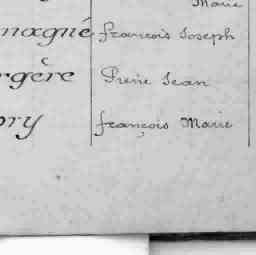 Marie
magné François Joseph
rgère Pierre Jean
ory François Marie